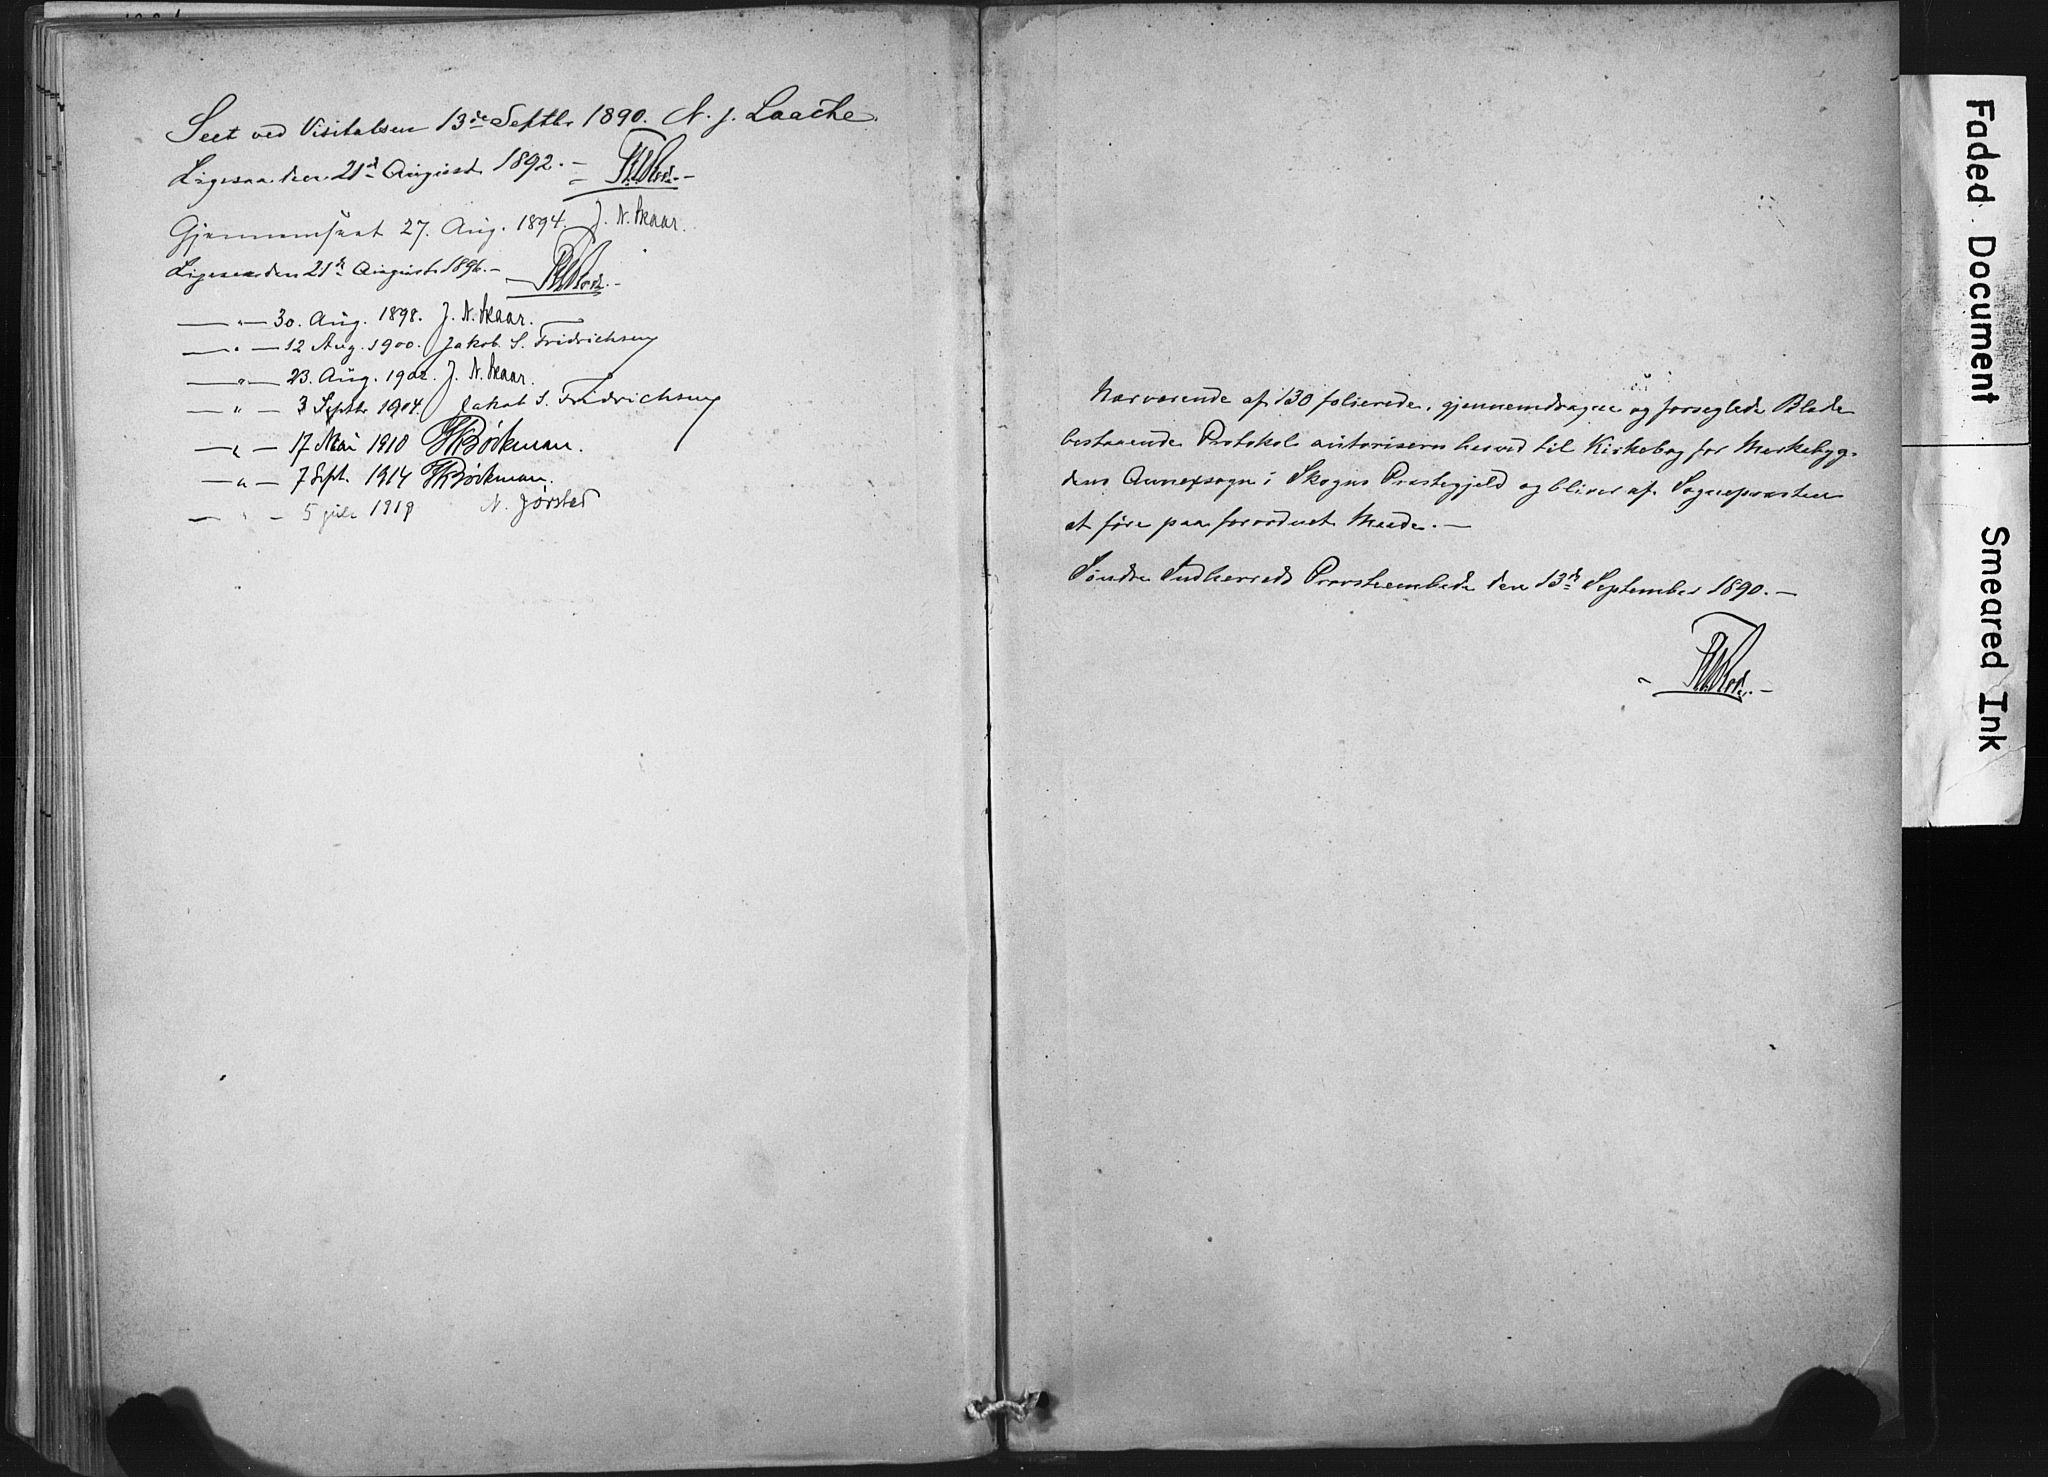 Seet ved Visitatsen 13de Septbr 1890. N. J. Laache.
Ligesaa den 21de August 1892. —
Gjennemseet 27. Aug. 1894. J. N. Skaar.
Ligesaa den 21de August 1896. —
— " — 30. Aug. 1898. J. N. Skaar.
— " — 12 Aug. 1900. Jakob S. Fridrichsen
— " — 23. Aug. 1902. J. N. Skaar.
— " — 3 Septbr 1904. Jakob S. Fridrichsen
— " — 17 Mai 1910 Bøckman.
— " — 7 Sept. 1914 Bøckman.
— " — 5 juli 1919 N. Jørstad
Nærværende af 130 folierede, gjennemdragne og forseglede Blade
bestaaende Protokol autoriseres herved til Kirkebog for Markabyg-
dens Annexsogn i Skogns Præstegjeld og bliver af Sognepræsten
at føre paa forordnet Maade. —
Søndre Indherreds Provsteembede den 13de September 1890. —
Faded Document
Smeared Ink